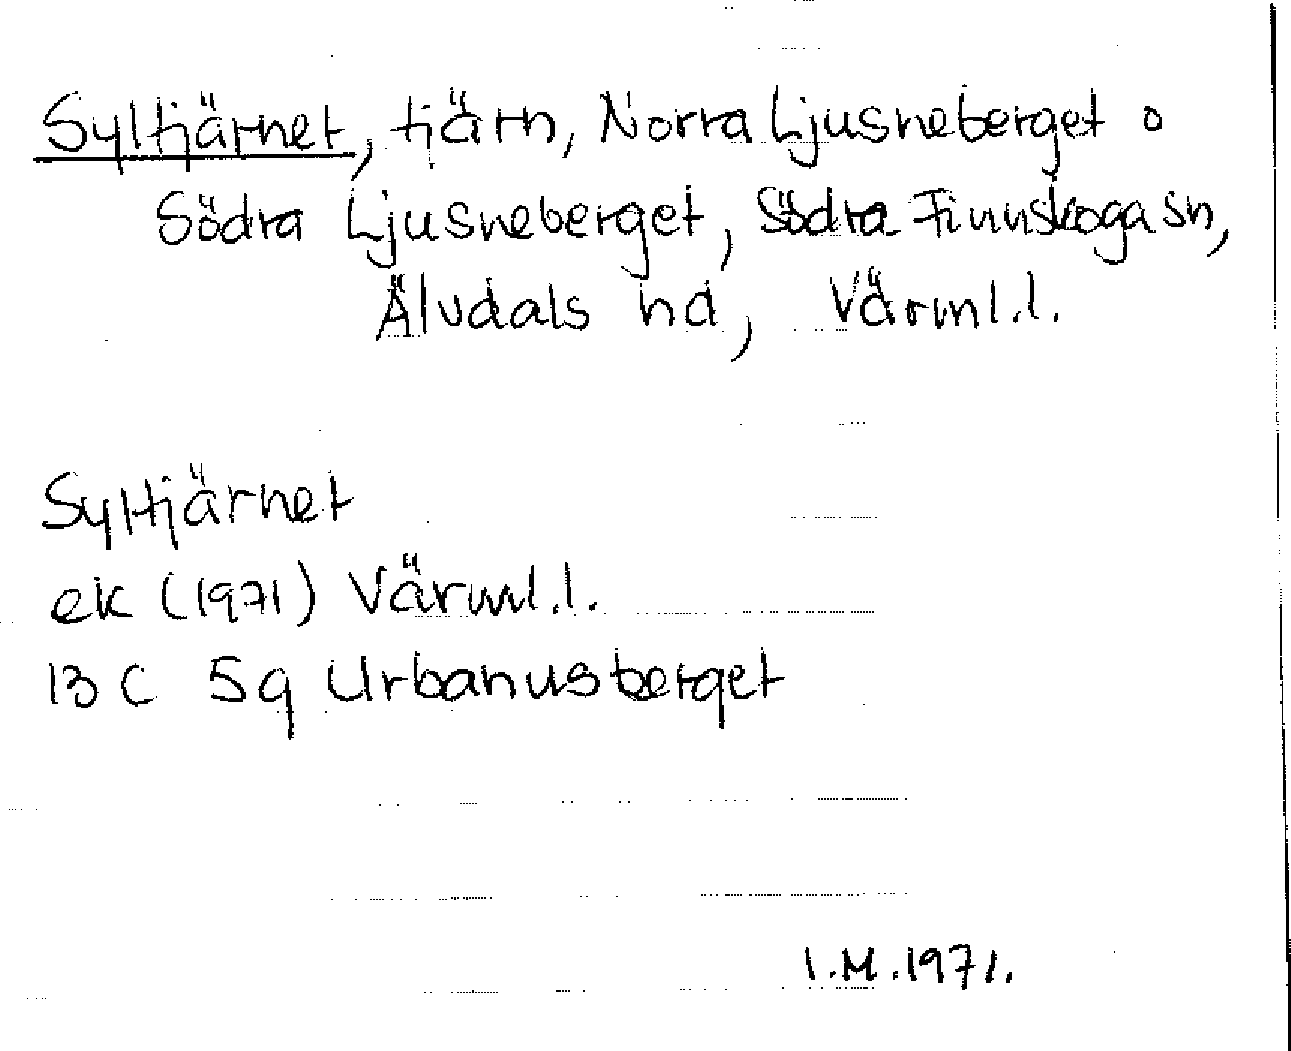 Syltjärnet, tjärn, Norra Ljusneberget o
Södra Ljusneberget, Södra Finnskoga sn,
Älvdals hd, Värml.l.
Syltjärnet
ek (1971) Värml.l.
13 C 5q Urbanusberget
I.M.1971.